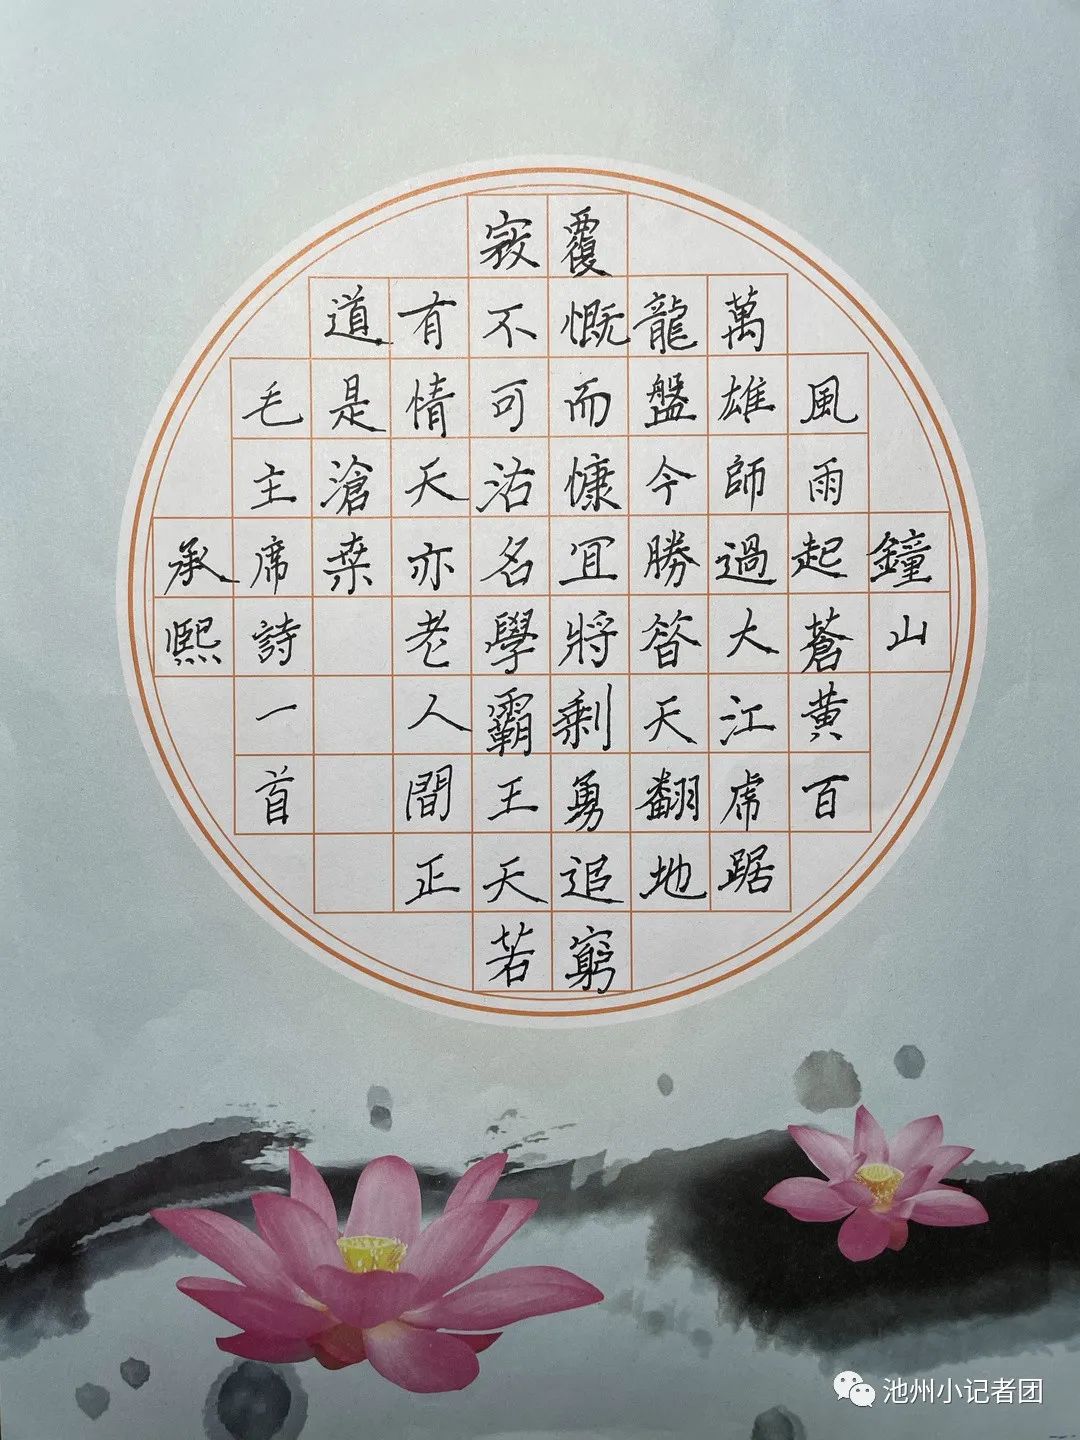 鐘山
風雨起蒼黄百
萬雄師過大江虎踞
龍盤今勝昔天翻地
覆慨而慷宜將剩勇追窮
寇不可沽名學霸王天若
有情天亦老人間正
道是滄桑
毛主席詩一首
承熙
池州小记者团